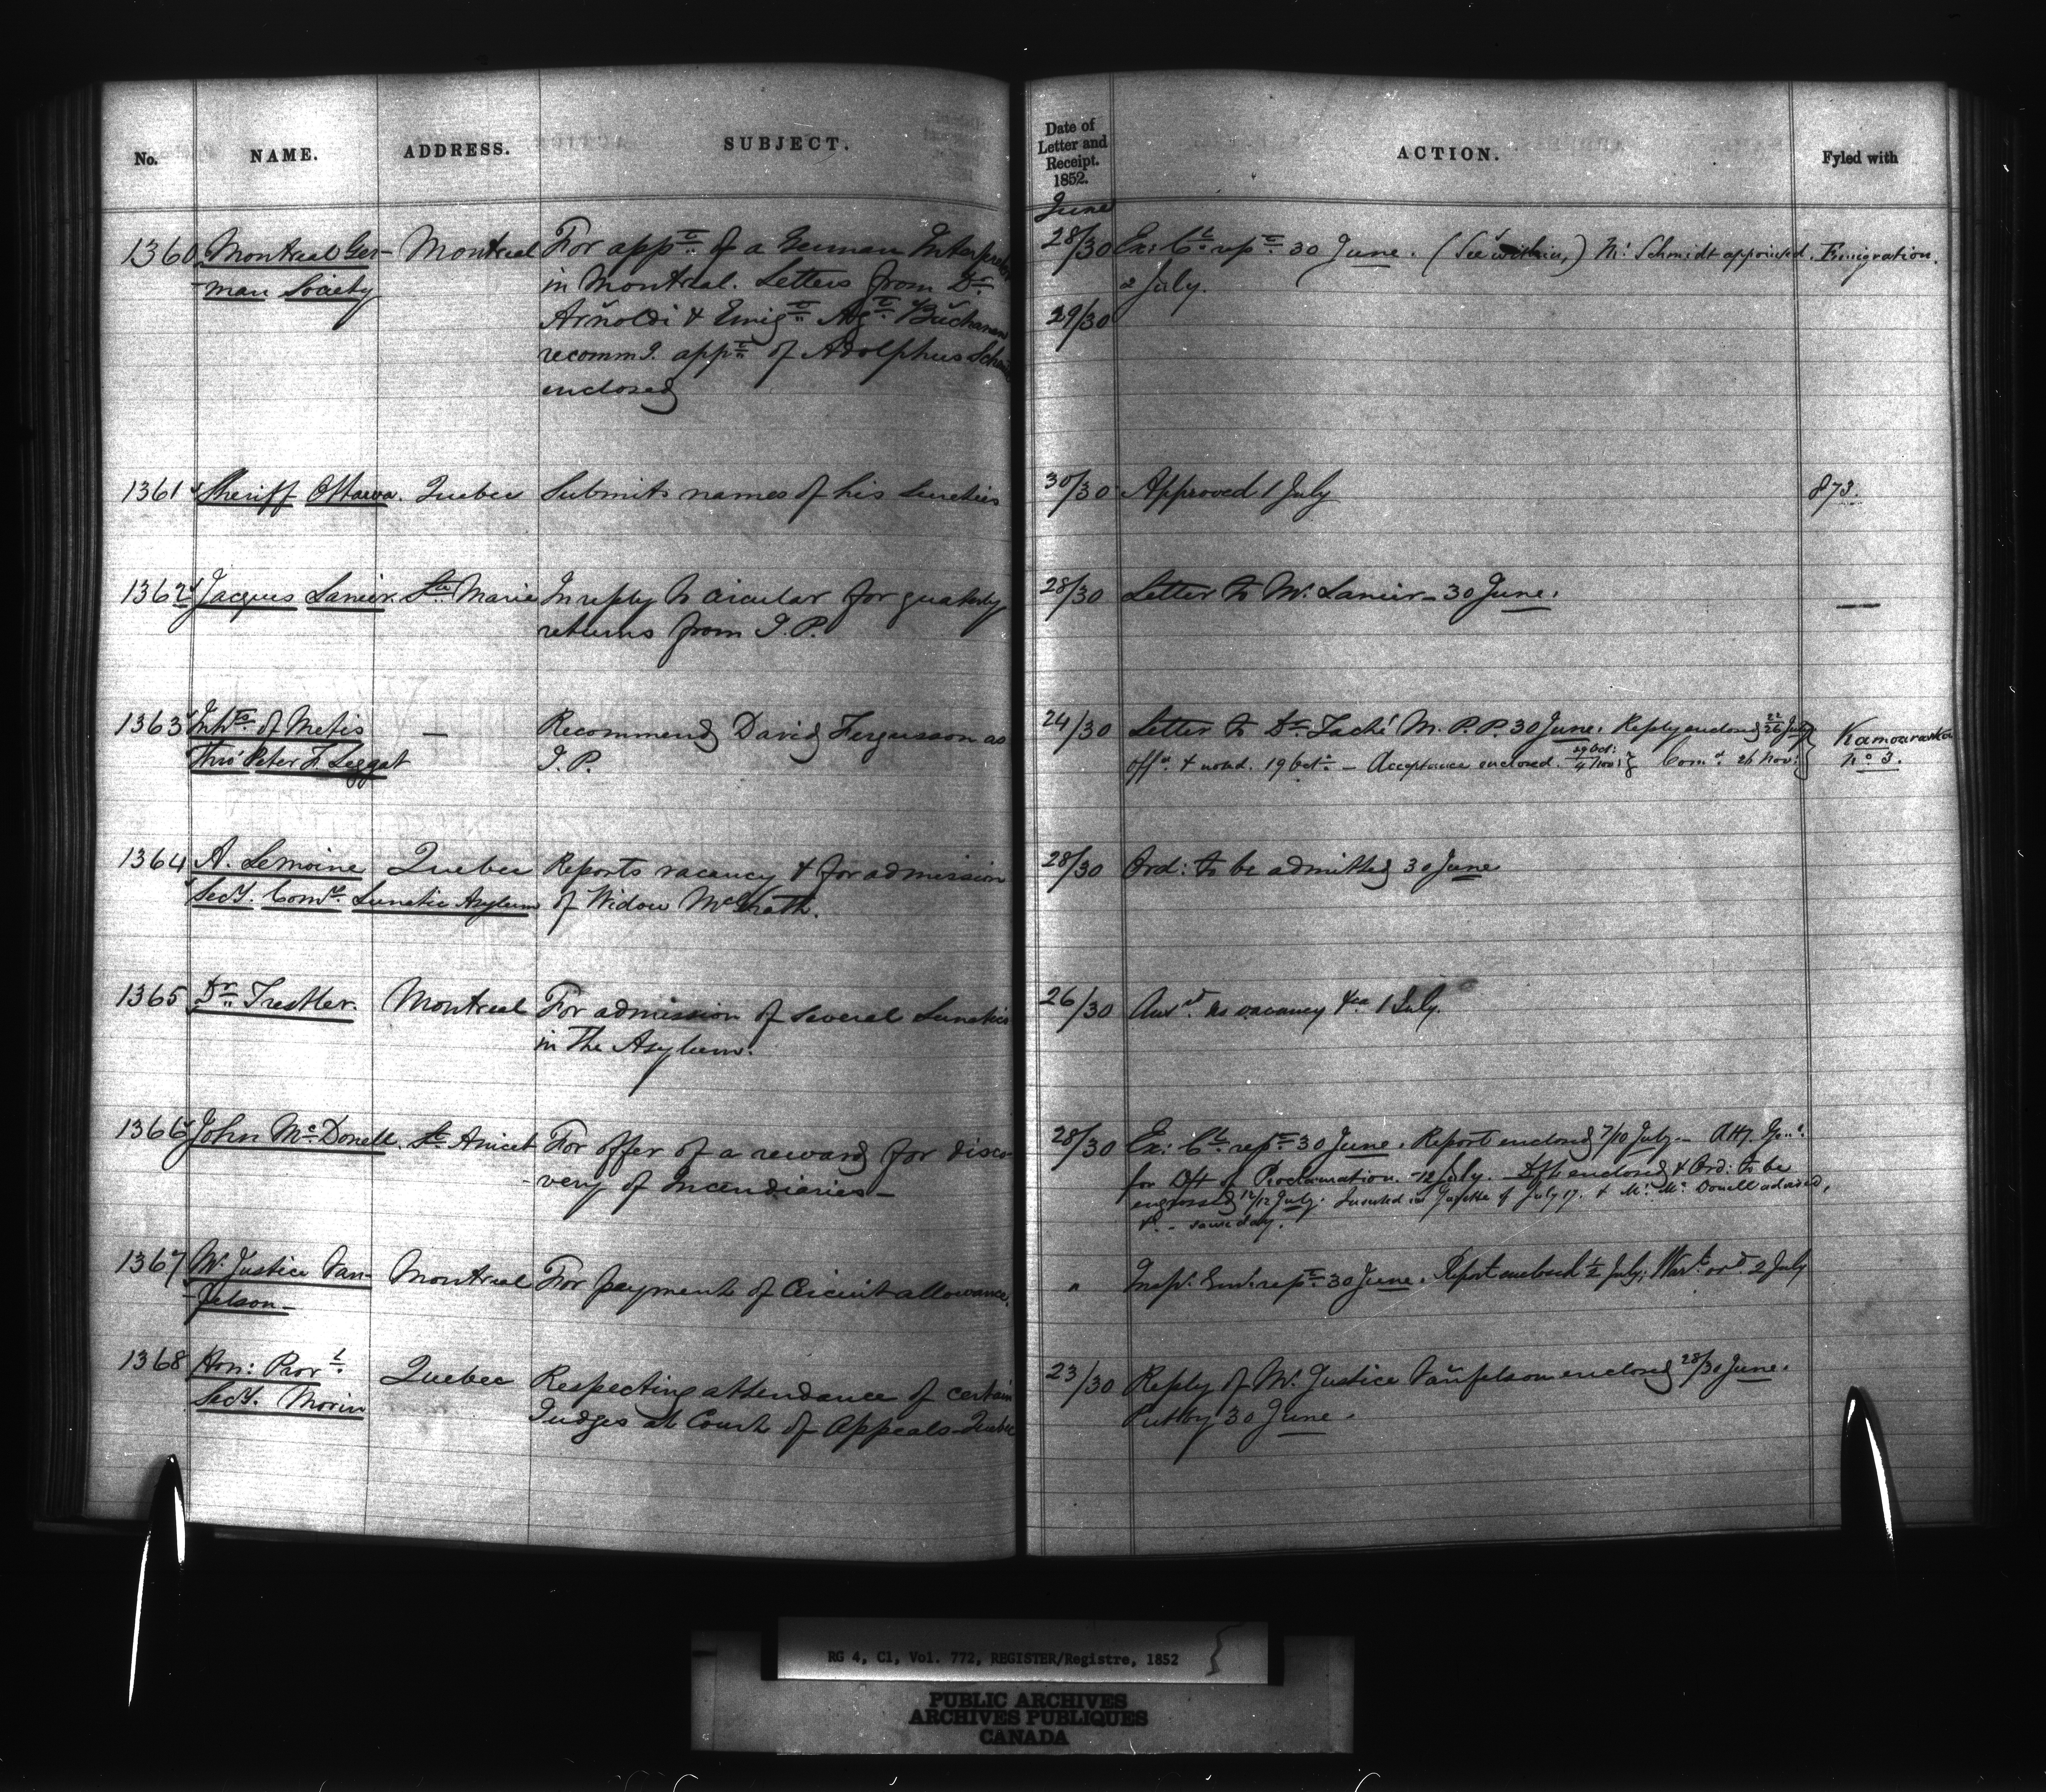 No.
NAME.
ADDRESS.
SUBJECT.
Date of
Letter and
Receipt.
1852.
ACTION.
Fyled with
June
1360 Montreal Ger- Montreal For appt. of a German Interpreter 28/30 Ex: Cl. rept. 30 June. (See within) Mr. Schmidt appointed. Emigration.
man Society in Montreal. Letters from Dr. 2 July.
Arnoldi & Emigt. Agt. Buchanan 29/30
recommg. appt. of Adolphus Schmidt
enclosed
1361 Sheriff Ottawa. Quebec Submits names of his Sureties 30/30 Approved 1 July 873.
1362 Jacques Lanier. Ste. Marie In reply to circular for quarterly 28/30 Letter to Mr. Lanier - 30 June. —
returns from J.P.
1363 Inhts. of Metis — Recommend David Fergusson as 24/30 Letter to Dr. Taché M.P.P. 30 June. Reply enclosed 22/26 July Kamouraska
Thro' Peter F. Leggat J.P. Offd. & notd. 19 Oct. - Acceptance enclosed. 29 Oct:/4 Nov: Comn. 26 Nov: No. 3.
1364 A. Lemoine Quebec Reports vacancy & for admission 28/30 Ord: to be admitted 30 June
Secy. Comrs. Lunatic Asylum of Widow McGrath.
1365 Dr. Trestler. Montreal For admission of several Lunatics 26/30 Ansd. no vacancy &ca 1 July.
in the Asylum.
1366 John McDonell. St. Anicet For offer of a reward for disco- 28/30 Ex: Cl. rept. 30 June. Report enclosed 7/10 July - Atty. Genl.
very of Incendiaries - for Dft of Proclamation - 12 July. - Dft enclosed & Ord: to be
engrossed 12/12 July. Inserted in Gazette of July 17. & Mr. McDonell advised,
&c. - same day.
1367 Mr. Justice Van- Montreal For payment of Circuit allowance. " Inspr. Genl. rept. 30 June. Report enclosed 1/2 July; Wart. ord. 2 July
felson -
1368 Hon: Provl. Quebec Respecting attendance of certain 23/30 Reply of Mr. Justice Vanfelson enclosed 28/30 June.
Secy. Morin Judges at Court of Appeals - Quebec Put by 30 June.
RG 4, C1, Vol. 772, REGISTER/Registre, 1852
PUBLIC ARCHIVES
ARCHIVES PUBLIQUES
CANADA